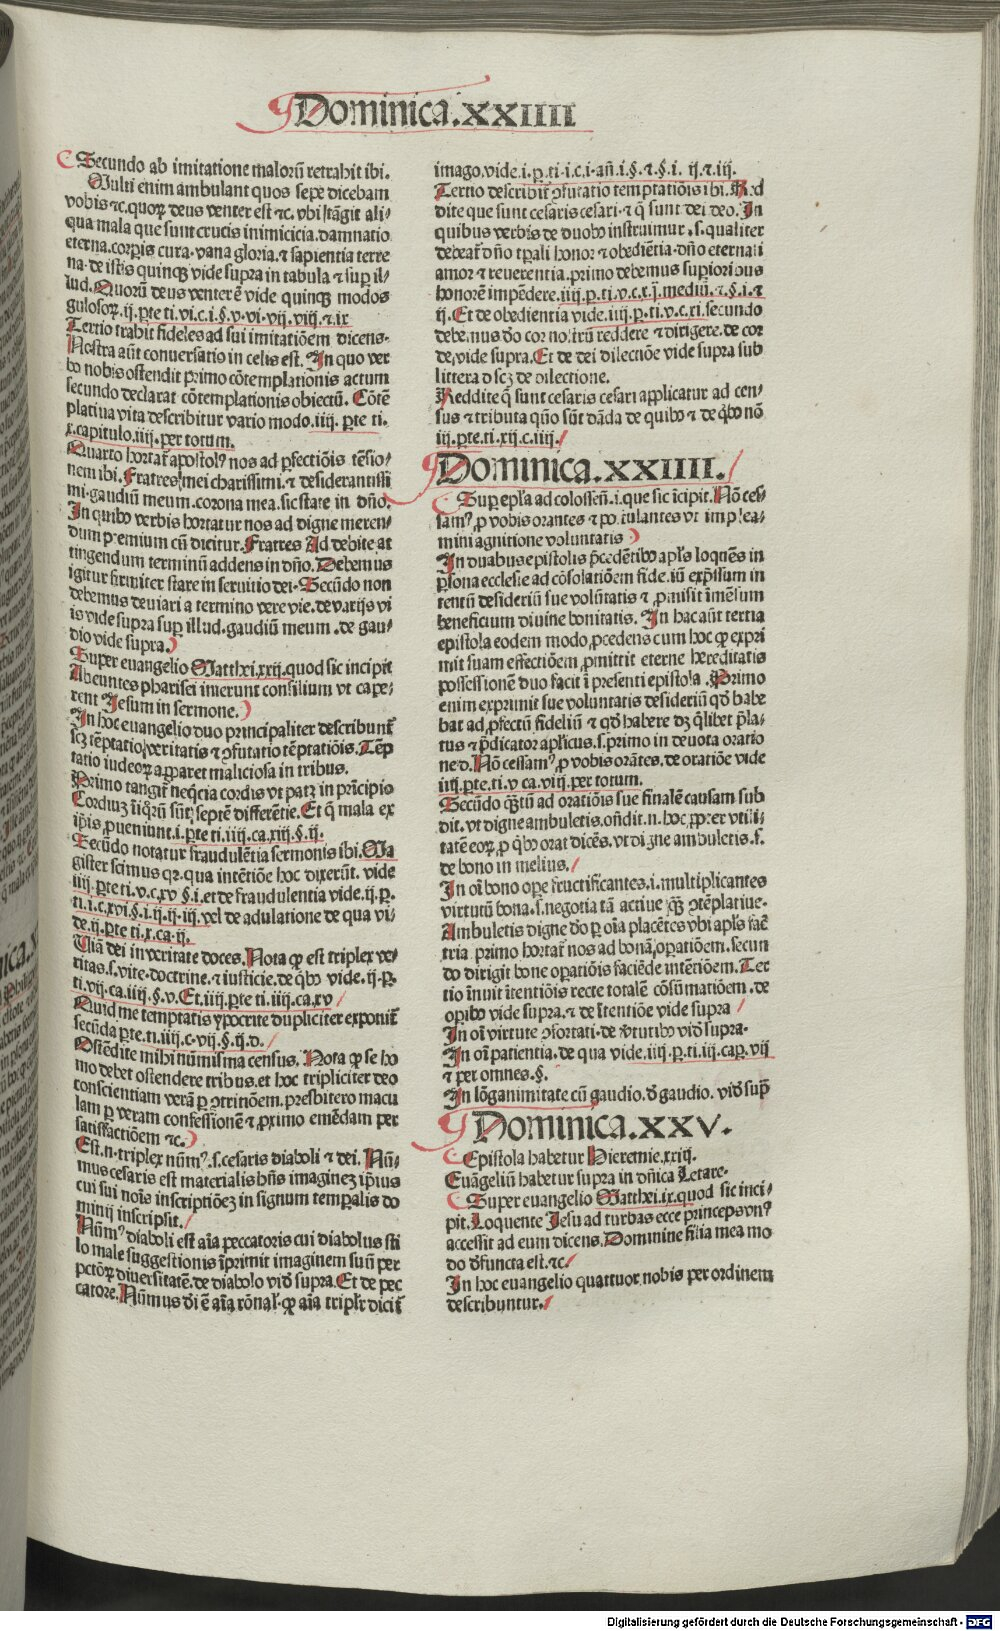 Dominica.xxiiii
Secundo ab imitatione maloꝝ retrahit ibi.
Multi enim ambulant quos sepe dicebam
vobis ⁊c. quoꝝ deus venter est ⁊c. vbi tāgit ali⸗
qua mala que sunt crucis inimicicia. damnatio
eterna. corꝑis cura. vana gloria. ⁊ sapientia terre
na. de istis quinqꝫ vide supra in tabula ⁊ suꝑ il⸗
lud. Quoꝝ deus venter ē vide quinqꝫ modos
gulosoꝝ. ij. ꝑte ti. vi. c. i. §. v. vi. vij. viij. ⁊ ix
Tertio trahit fideles ad sui imitatiōem dicens.
Nostra aūt conuersatio in celis est. In quo ver
bo nobis ostendit primo cōtemplationis actum
secundo declarat cōtemplationis obiectū. Cōtē
platiua vita describitur vario modo. iiij. ꝑte ti.
x. capitulo. iiij. per totum.
Quarto hortat̄ apostolꝰ nos ad ꝑfectiōis tēsio⸗
nem ibi. Fratres mei charissimi. ⁊ desiderantissi
mi. gaudiū meum. corona mea. sic state in dn̄o.
In quibꝰ verbis hortatur nos ad digne meren⸗
dum premium cū dicitur. Fratres Ad debite at
tingendum terminū addens in dn̄o. Debemus
igitur firmiter stare in seruitio dei. Secūdo non
debemus deuiari a termino vere vie. de varijs vi
is vide supra suꝑ illud. gaudiū meum. de gau⸗
dio vide supra.
Super euangelio Matthei. xxij. quod sic incipit
Abeuntes pharisei inierunt consilium vt cape⸗
rent Jesum in sermone.
In hoc euangelio duo principaliter describunt̄
scꝫ tēptatio veritatis ⁊ ꝯfutatio tēptatiōis. Tēp
tatio iudeoꝝ apparet maliciosa in tribus.
Primo tangit̄ neq̄cia cordis vt patꝫ in pn̄cipio
Cordiuꝫ iniq̄ruꝫ sūt septē differētie. Et q̄ mala ex
ip̄is ꝓueniunt. i. ꝑte ti. iiij. ca. xiij. §. ij.
Secūdo notatur fraudulētia sermonis ibi. Ma
gister scimus qꝛ. qua intētiōe hoc dixerūt. vide
iiij. ꝑte ti. v. c. xv §. i. et de fraudulentia vide. ij. ꝑ.
ti. i. c. xvi. §. i. ij. ij. iij. vel de adulatione de qua vi⸗
de. ij. ꝑte ti. x. ca. ij.
Uiā dei in veritate doces. Nota ꝙ est triplex ve⸗
ritas. s. vite. doctrine. ⁊ iusticie. de qͥbꝰ vide. ij. ꝑ.
ti. vij. ca. iiij. §. v. Et. iiij. ꝑte ti. iiij. ca. xv
Quid me temptatis ypocrite dupliciter exponit̄
secūda ꝑte. ti. iiij. c. vij. §. ij. d.
Ostēdite mihi nūmisma census. Nota ꝙ se ho
mo debet ostendere tribus. et hoc tripliciter deo
conscientiam verā ꝑ ꝯtritiōem. presbitero macu
lam ꝑ veram confessionē ⁊ ꝓximo emēdam per
satisfactiōem ⁊c.
Est. n. triplex nūmꝰ. s. cesaris diaboli ⁊ dei. Nū⸗
mus cesaris est materialis hn̄s imagineꝫ ip̄sius
cui sui nois̄ inscriptiōeꝫ in signum temꝑalis do
minij inscripsit.
Nūmꝰ diaboli est aīa peccatoris cui diabolus sti
lo male suggestionis īprimit imaginem suū per
pctōꝝ diuersitatē. de diabolo vid̄ supra. Et de pec
catore. Nūmus dī ē aīa rōnal̓. ꝙ aīa triplr̄ dicit̄
imago. vide. i. ꝑ. ti. i. c. i. añ. i. §. ⁊ §. i. ij. ⁊. iij.
Tertio describit̄ ꝯfutatio temptatiōis ibi. Red
dite que sunt cesaris cesari. ⁊ q̄ sunt dei deo. In
quibus verbis de duobꝰ instruimur. s. qualiter
debeat̄ dn̄o tꝑali honor ⁊ obediētia. dn̄o eternali
amor ⁊ reuerentia. primo debemus suꝑioribus
honorē impēdere. iiij. ꝑ. ti. v. c. x. ꝭ. mediū. ⁊. §. i. ⁊
ij. Et de obedientia vide. iiij. ꝑ. ti. v. c. xi. secundo
debemus dn̄o cor nostrū reddere ⁊ dirigere. de cor
de. vide supra. Et de dei dilectiōe vide supra sub
littera d scꝫ de dilectione.
Reddite q̄ sunt cesaris cesari applicatur ad cen⸗
sus ⁊ tributa qn̄o sūt dāda de quibꝰ ⁊ de qͥbꝰ nō
iij. ꝑte. ti. xij. c. iiij.
Dominica.xxiiii.
Suꝑ epl̄a ad colossen̄. i. que sic īcipit. Nō ces⸗
samꝰ ꝓ vobis orantes ⁊ postulantes vt implea⸗
mini agnitione voluntatis
In duabus epistolis p̄cedētibꝰ apl̓s loquēs in
ꝑsona ecclesie ad cōsolatiōem fideliū exp̄ssum in
tentū desideriū sue volūtatis ⁊ ꝓmisit īmēsum
beneficium diuine bonitatis. In hac aūt tertia
epistola eodem modo ꝓcedens cum hoc ꝙ expri
mit suam effectiōem ꝓmittit eterne hereditatis
possessionē duo facit ī presenti epistola. Primo
enim exprimit sue voluntatis desideriū qd̄ habe
bat ad ꝓfectū fideliū ⁊ qd̄ habere dꝫ q̄libet p̄la⸗
tus ⁊ p̄dicator apl̓icus. s. primo in deuota oratio
ne. d. Nō cessamꝰ ꝓ vobis orātes. de oratiōe vide
iiij. ꝑte. ti. v ca. viij. per totum.
Secūdo qꝫtū ad oratiōis sue finalē causam sub
dit. vt digne ambuletis. on̄dit. n. hoc ꝓpter vtili⸗
tatē eoꝝ ꝓ qͥbꝰ orat dicēs. vt digne ambuletis. s.
de bono in melius.
In oi bono oꝑe fructificantes. i. multiplicantes
virtutū bona. s. negotia tā actiue qꝫ ꝯtēplatiue.
Ambuletis digne deo ꝑ oīa placētes vbi apl̓s facit
tria primo hortat̄ nos ad bonā oꝑatiōem. secun
do dirigit bone oꝑatiōis faciēde intētiōem. Ter
tio īnuit ītentiōis recte totalē cōsūmatiōem. de
oꝑibꝰ vide supra. ⁊ de ītentiōe vide supra
In oi virtute ꝯfortati. de ꝟtutibꝰ vid̄ supra.
In oi patientia. de qua vide. iiij. ꝑ. ti. iij. caꝑ. vij
⁊ per omnes. §.
In lōganimitate cū gaudio. d̓ gaudio. vid̄ sup̄
Dominica.xxv.
Epistola habetur Hieremie. xxiij.
Euāgeliū habetur supra in dn̄ica Letare.
Super euangelio Matthei. ix. quod sic inci⸗
pit. Loquente Jesu ad turbas ecce princeps vnꝰ
accessit ad eum dicens. Domine filia mea mo
do d̓functa est. ⁊c.
In hoc euangelio quattuor nobis per ordinem
describuntur.
Digitalisierung gefördert durch die Deutsche Forschungsgemeinschaft - DFG